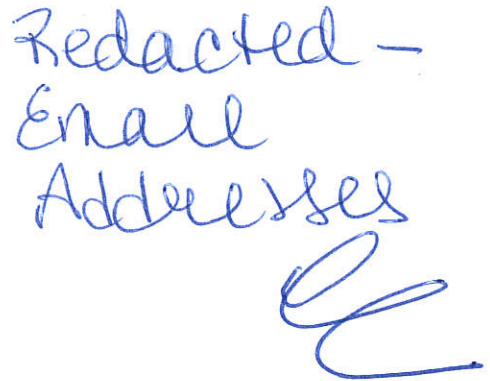 Redacted -
Email
Addresses